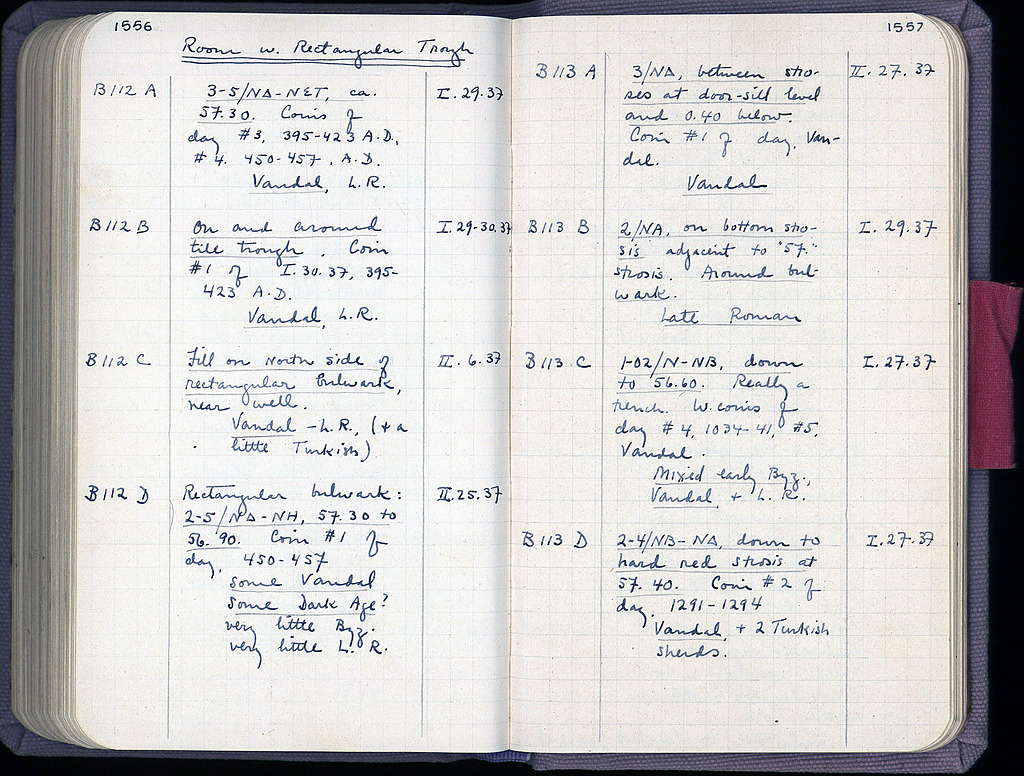 1556
Room w. Rectangular Trough
B112 A 3-5/NΔ-NET, ca. I.29.37
57.30. Coins of
day #3, 395-423 A.D.,
#4. 450-457. A.D.
Vandal, L.R.
B112 B On and around I.29-30.37
tile trough. Coin
#1 of I.30.37, 395-
423 A.D.
Vandal, L.R.
B112 C Fill on North side of II.6.37
rectangular bulwark,
near well.
Vandal - L.R., (+ a
little Turkish)
B112 D Rectangular bulwark: II.25.37
2-5/NΔ-NH, 57.30 to
56.90. Coin #1 of
day, 450-457
some Vandal
some Dark Age?
very little Byz.
very little L.R.
1557
B113 A 3/NA, between stro- II.27.37
ses at door-sill level
and 0.40 below.
Coin #1 of day, Van-
dal.
Vandal
B113 B 2/NA, on bottom stro- I.29.37
sis adjacent to "57."
strosis. Around bul-
wark.
Late Roman
B113 C 1-02/N-NB, down I.27.37
to 56.60. Really a
trench. W. coins of
day #4, 1034-41, #5,
Vandal.
Mixed early Byz.,
Vandal + L.R.
B113 D 2-4/NB-NA, down to I.27.37
hard red strosis at
57.40. Coin #2 of
day, 1291-1294
Vandal, + 2 Turkish
sherds.